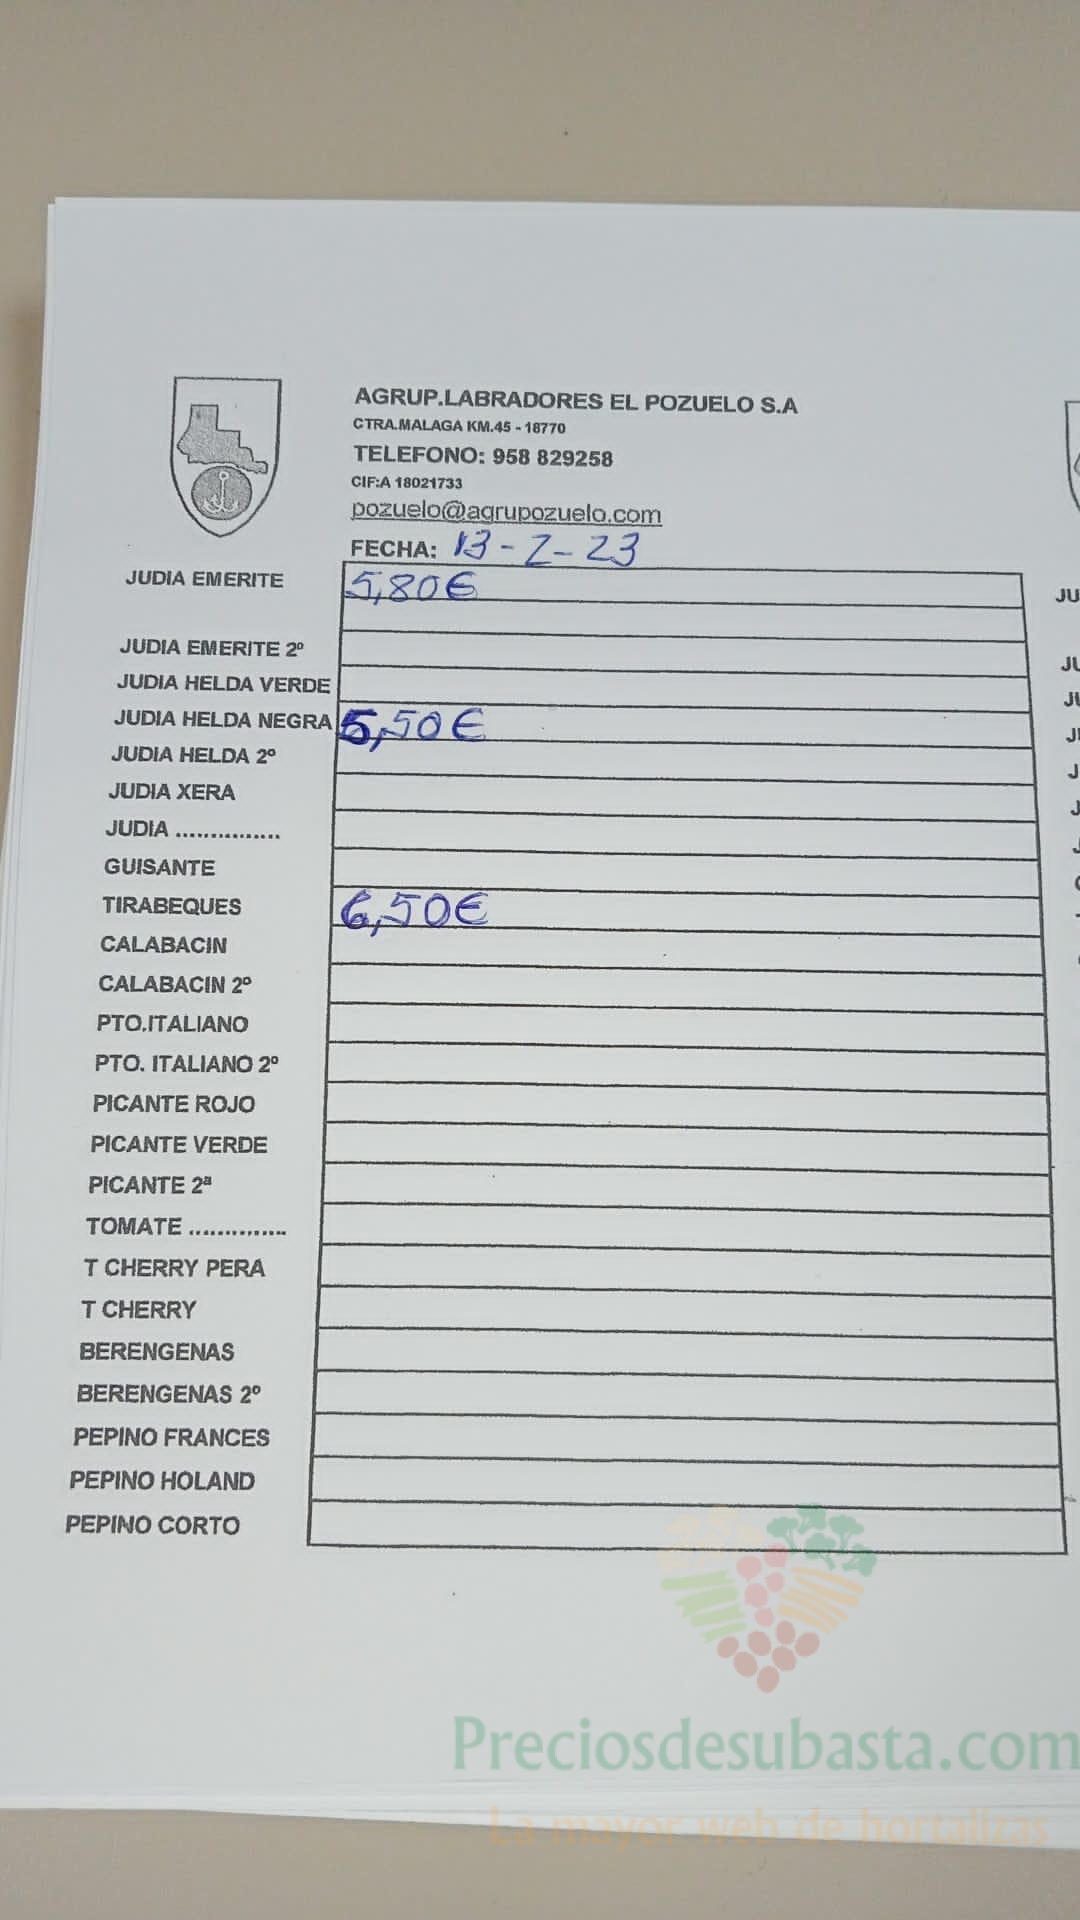 AGRUP.LABRADORES EL POZUELO S.A
CTRA.MALAGA KM.45 - 18770
TELEFONO: 958 829258
CIF:A 18021733
pozuelo@agrupozuelo.com
FECHA: 13-2-23
JUDIA EMERITE 5,80€
JUDIA EMERITE 2º
JUDIA HELDA VERDE
JUDIA HELDA NEGRA 5,50€
JUDIA HELDA 2º
JUDIA XERA
JUDIA ...............
GUISANTE
TIRABEQUES 6,50€
CALABACIN
CALABACIN 2º
PTO.ITALIANO
PTO. ITALIANO 2º
PICANTE ROJO
PICANTE VERDE
PICANTE 2ª
TOMATE ..............
T CHERRY PERA
T CHERRY
BERENGENAS
BERENGENAS 2º
PEPINO FRANCES
PEPINO HOLAND
PEPINO CORTO
JU
JU
JU
Preciosdesubasta.com
La mayor web de hortalizas